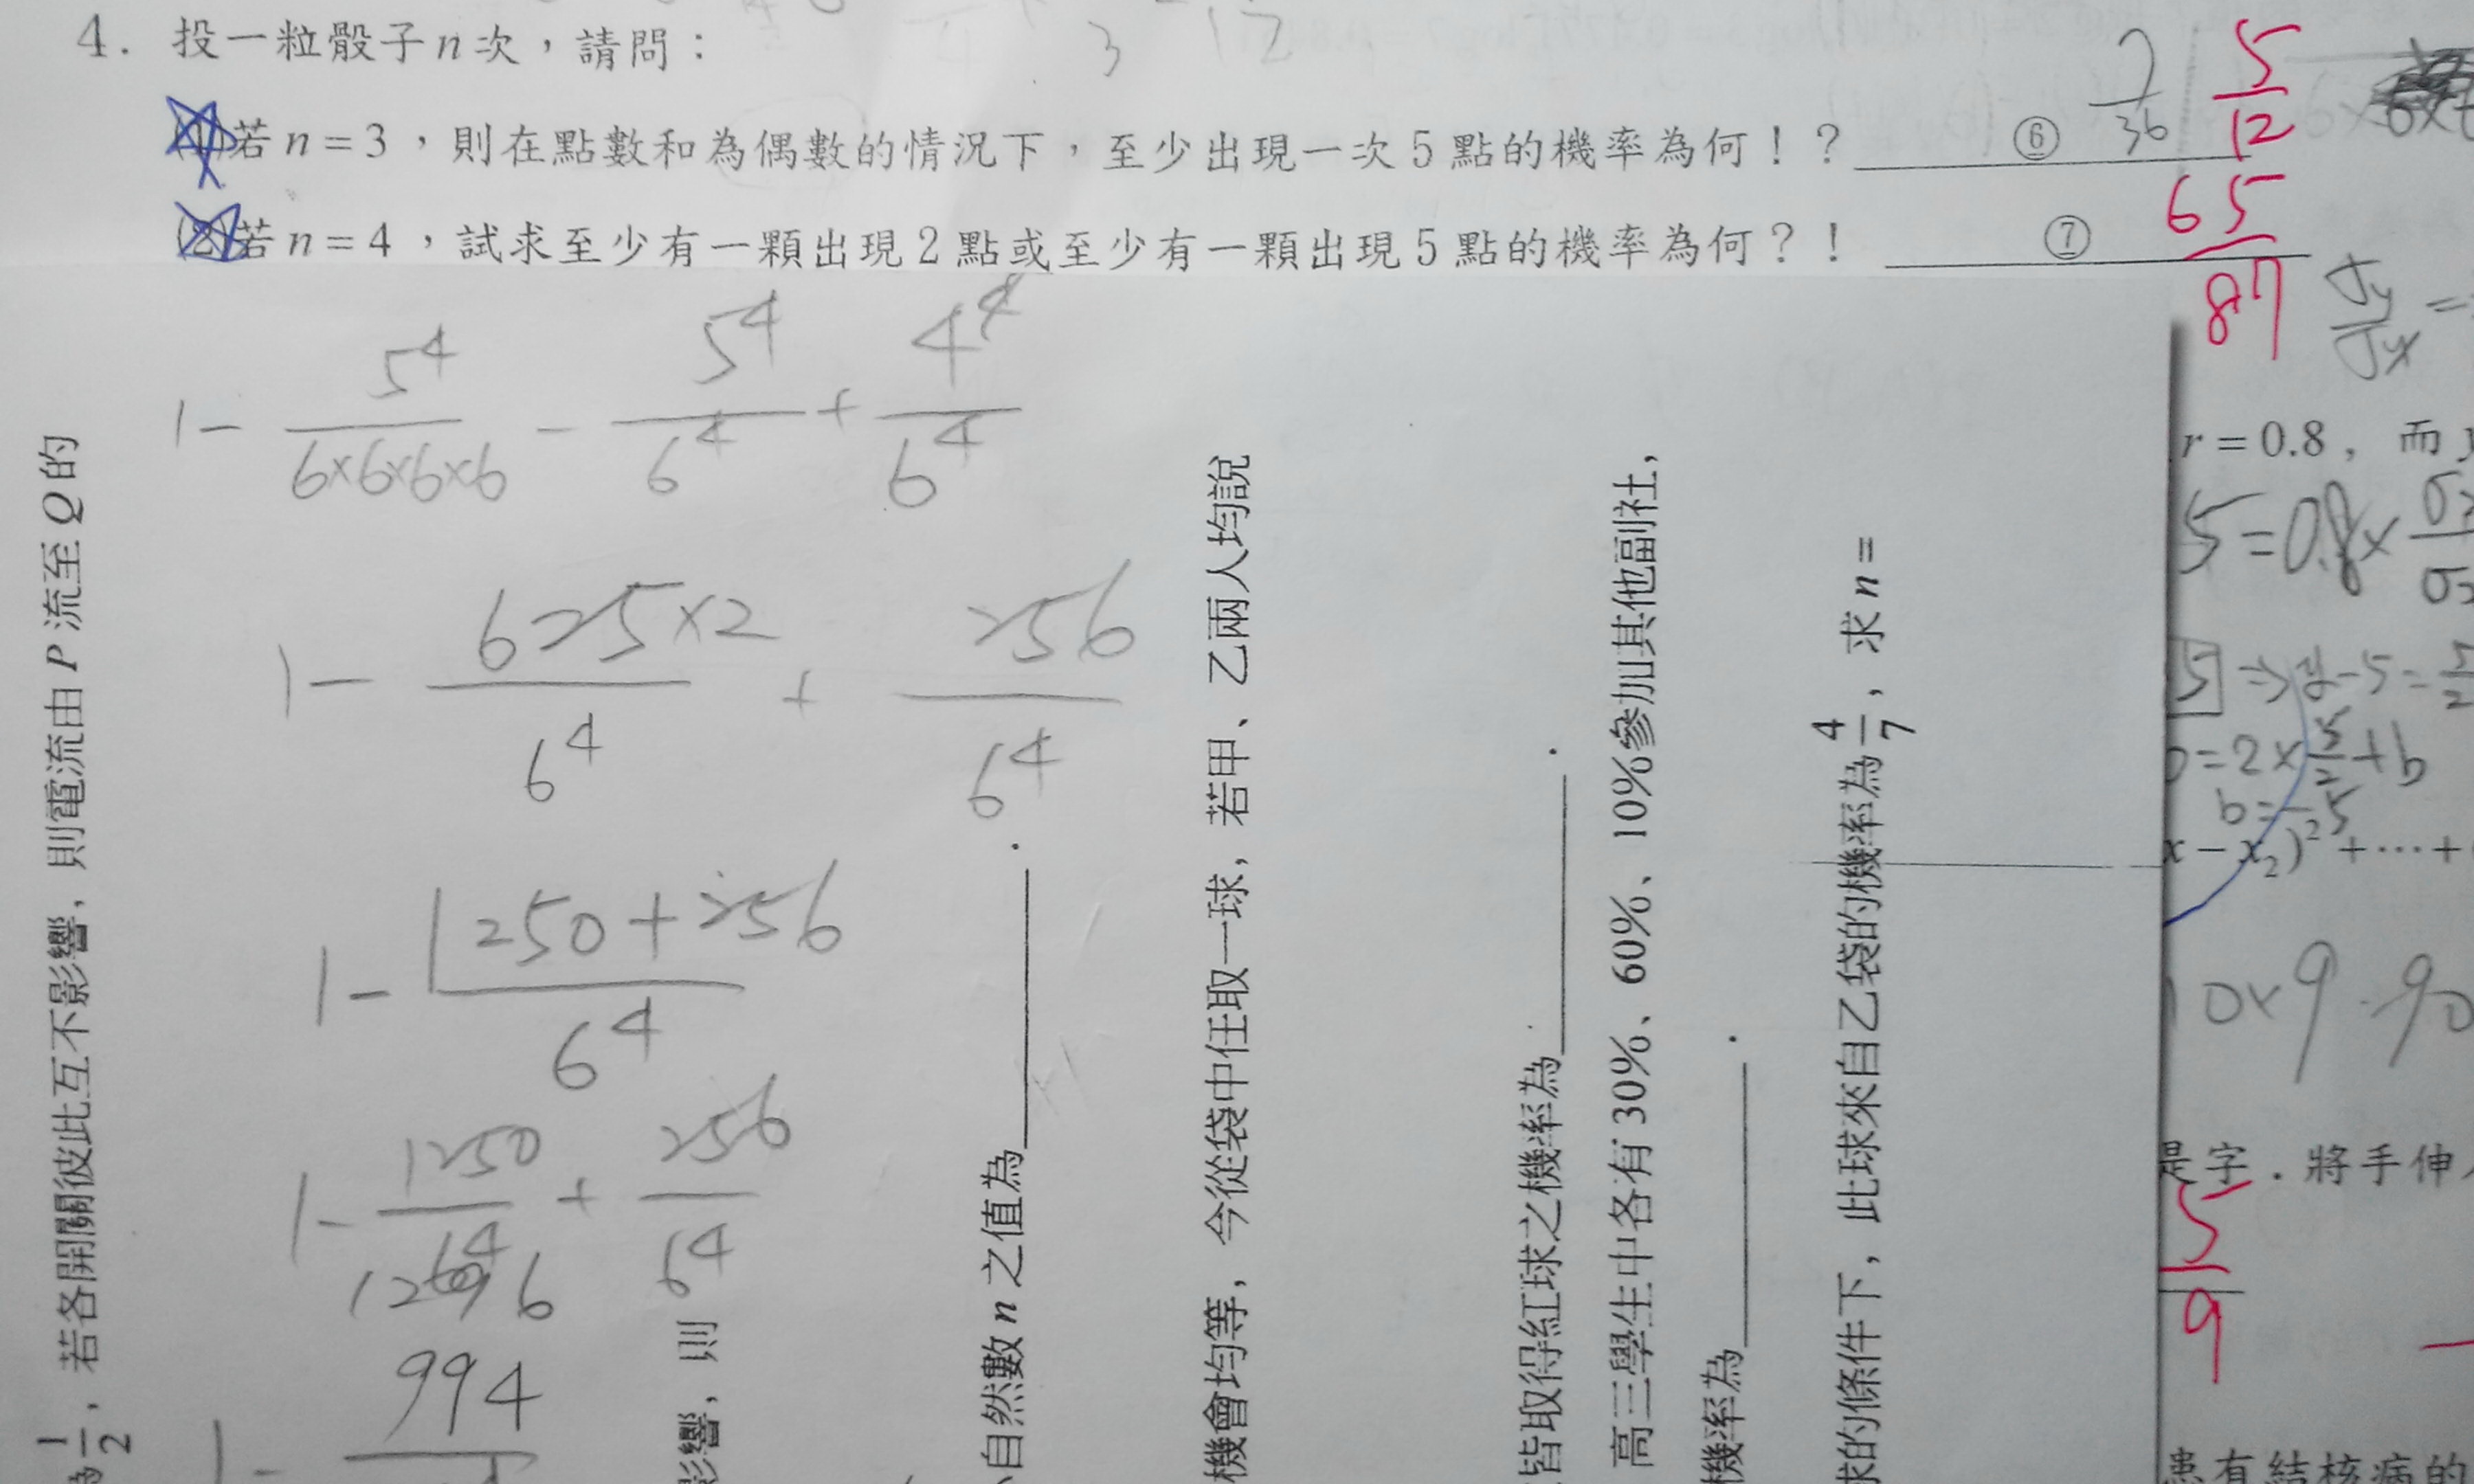 4. 投一粒骰子n次，請問：
3 12
(1)若n=3，則在點數和為偶數的情況下，至少出現一次5點的機率為何！？ ⑥ 7/36 5/12
(2)若n=4，試求至少有一顆出現2點或至少有一顆出現5點的機率為何？！ ⑦ 65/87
1 - 5^4/(6×6×6×6) - 5^4/6^4 + 4^4/6^4
1 - 625×2/6^4 + 256/6^4
1 - (1250+256)/6^4
1 - 1250/6^4 + 256/6^4
1296
994
1 -
1/2，若各開關彼此互不影響，則電流由 P 流至 Q 的
影響，則
自然數 n 之值為______．
機會均等，今從袋中任取一球，若甲、乙兩人均說
皆取得紅球之機率為______．
高三學生中各有 30%、60%、10%參加其他副社，
機率為______．
球的條件下，此球來自乙袋的機率為4/7，求 n =
σy/σx =
r = 0.8，而
5 = 0.8×
5 ⇒ y-5=
=2×5/2+b
b=-5
x - x₂)² + ⋯ +
10×9 90
是字．將手伸
5/9
患有結核病的